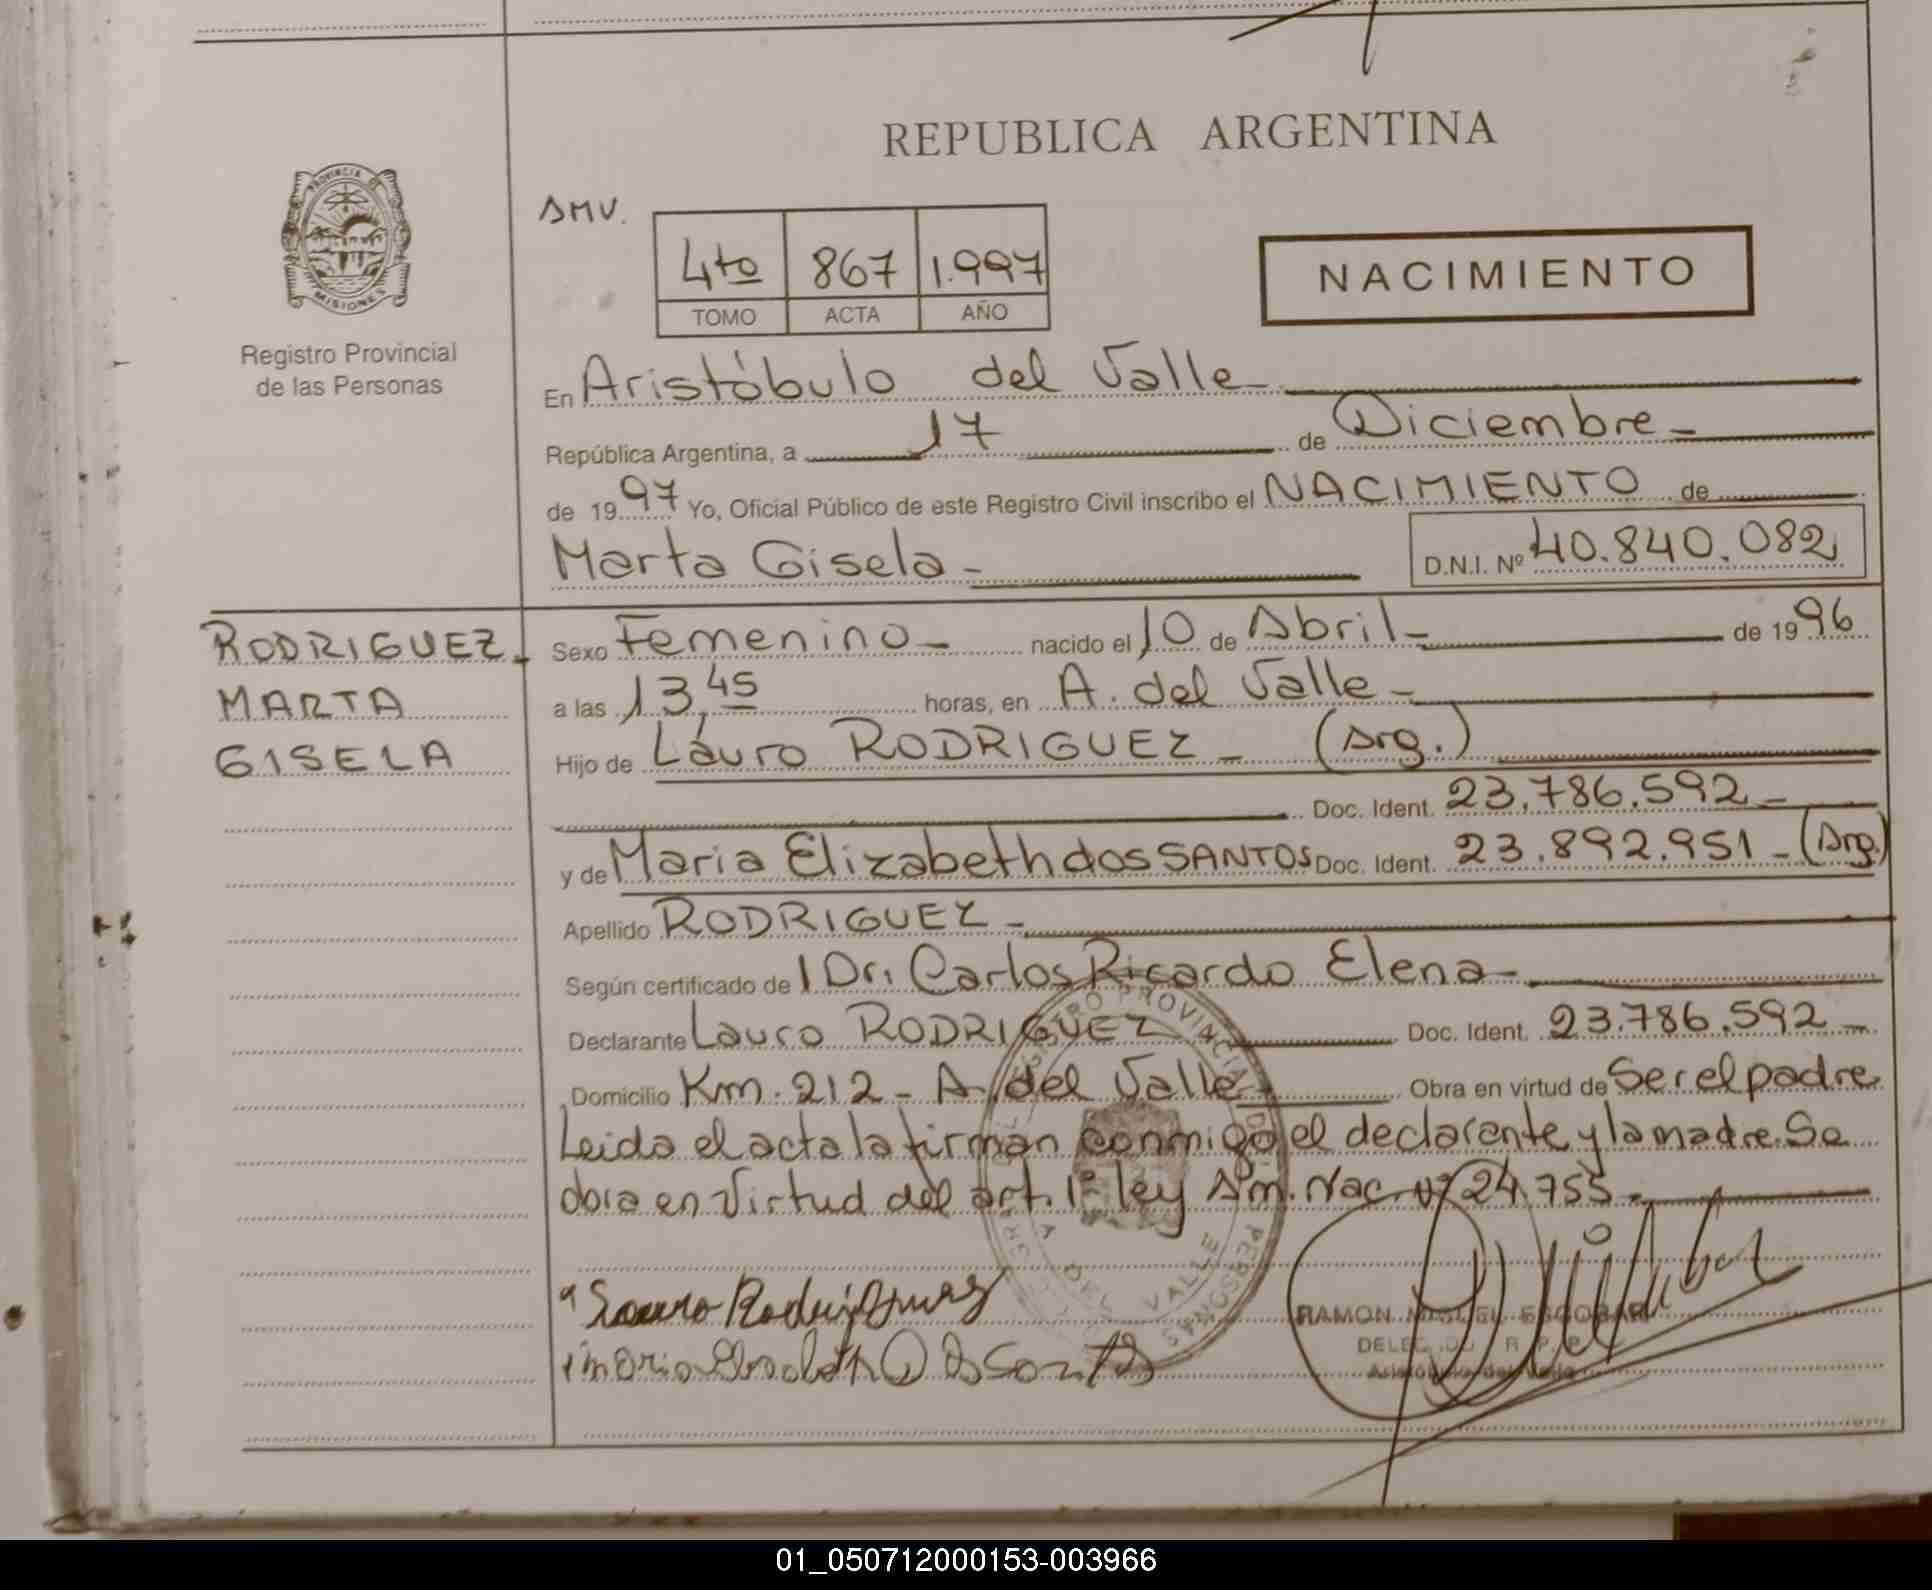 REPUBLICA ARGENTINA
PROVINCIA DE
MISIONES
Registro Provincial
de las Personas
SMV.
4to 867 1.997
TOMO ACTA AÑO
NACIMIENTO
En Aristóbulo del Valle
República Argentina, a 17 de Diciembre
de 1997 Yo, Oficial Público de este Registro Civil inscribo el NACIMIENTO de
Marta Gisela D.N.I. Nº 40.840.082
RODRIGUEZ
MARTA
GISELA
Sexo Femenino nacido el 10 de Abril de 1996
a las 13,45 horas, en A. del Valle
Hijo de Lauro RODRIGUEZ (Arg.)
Doc. Ident. 23.786.592
y de Maria Elizabeth dos SANTOS Doc. Ident. 23.892.951 (Arg.)
Apellido RODRIGUEZ
Según certificado de Dr. Carlos Ricardo Elena
Declarante Lauro RODRIGUEZ Doc. Ident. 23.786.592
Domicilio Km. 212 - A. del Valle Obra en virtud de Ser el padre
Leida el acta la firman conmigo el declarante y la madre. Se
obra en virtud del art. 1º ley Am. Nac. Nº 24.755
REGISTRO PROVINCIAL DE
PERSONAS
A DEL VALLE
Lauro Rodriguez
RAMON MIGUEL ESCOBAR
DELEGADO R. P. P.
Aristóbulo del Valle
01_050712000153-003966